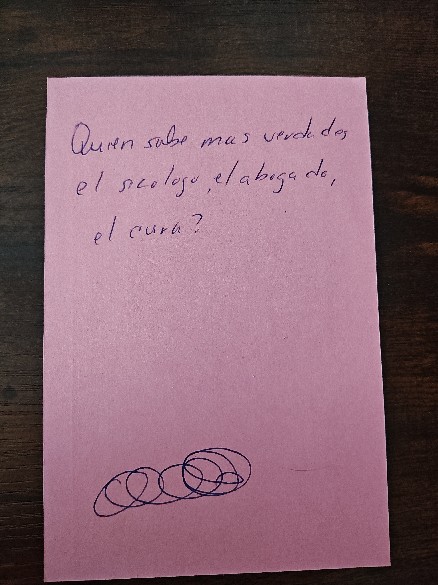 Quien sabe mas verdades
el sicologo, el abogado,
el cura?